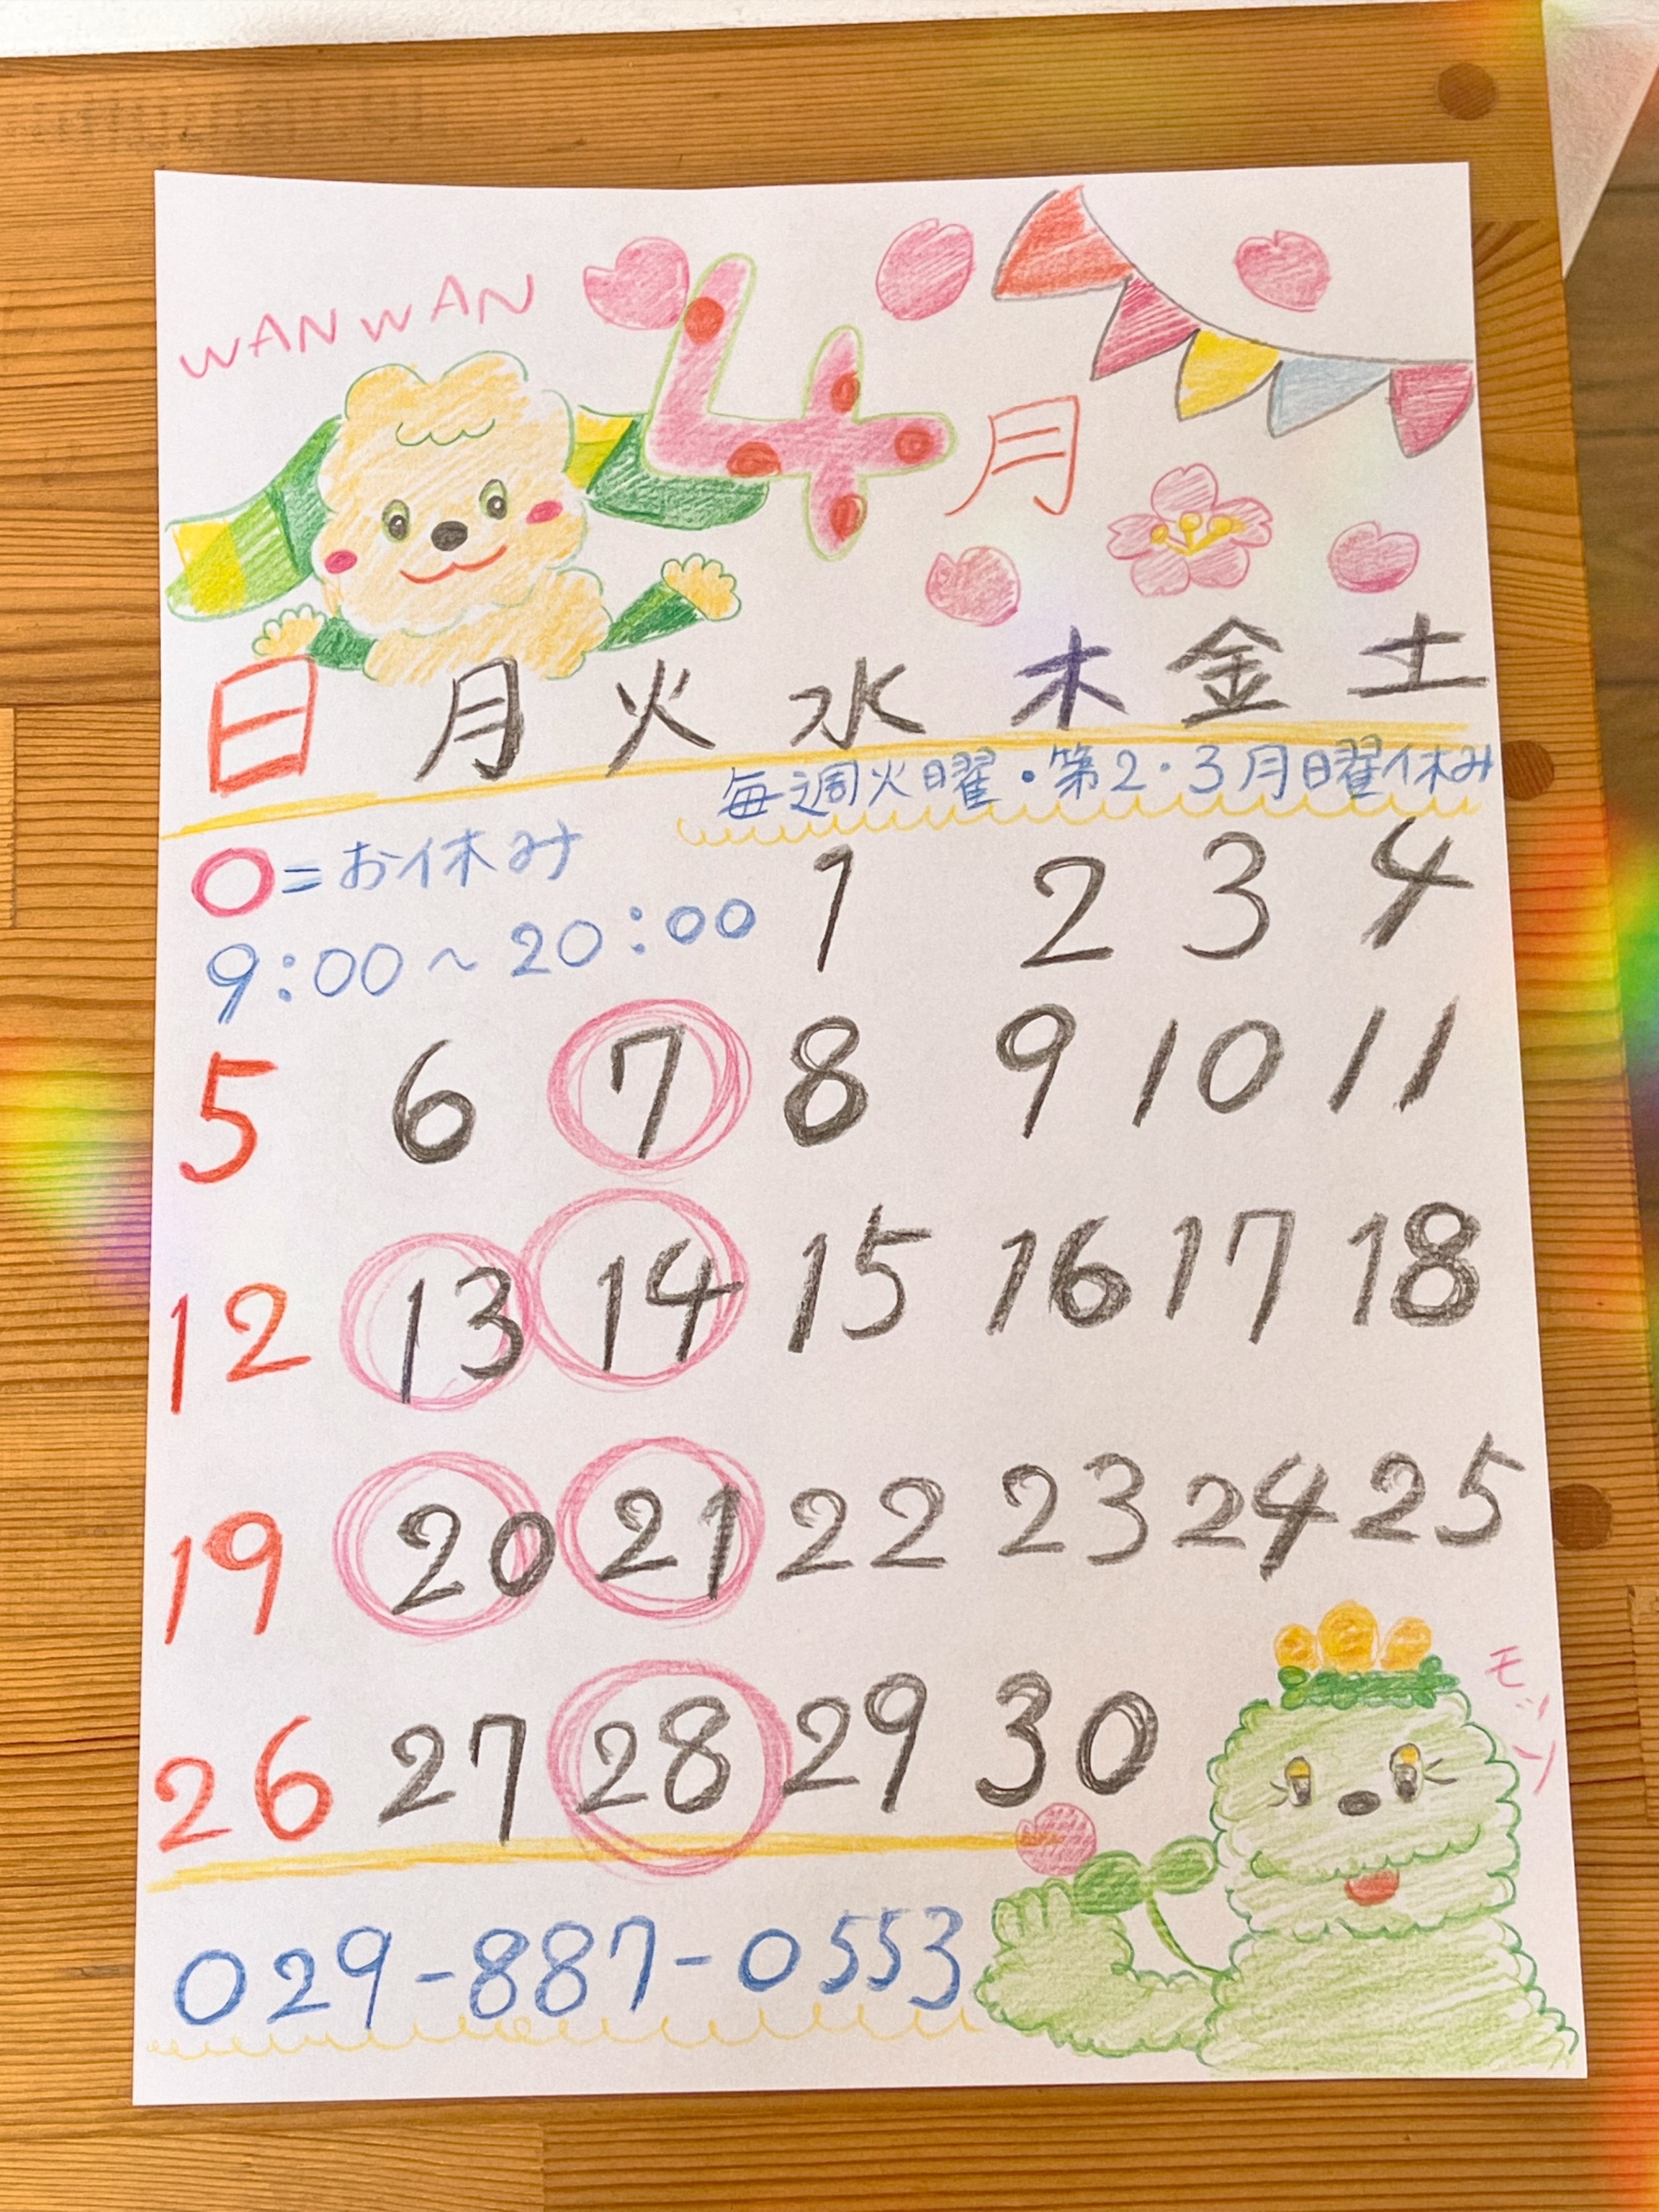 WANWAN
4月
日 月 火 水 木 金 土
毎週火曜・第2・3月曜休み
○=お休み
9:00~20:00
1 2 3 4
5 6 7 8 9 10 11
12 13 14 15 16 17 18
19 20 21 22 23 24 25
26 27 28 29 30
029-887-0553